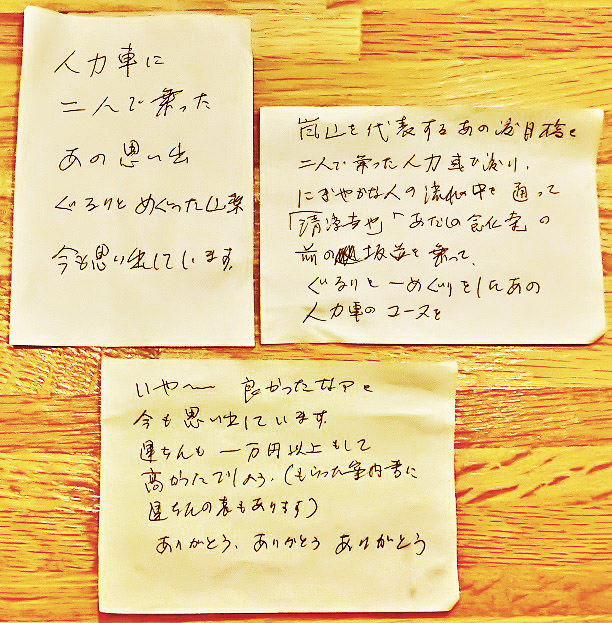 人力車に
二人で乗った
あの思い出
ぐるりとめぐった山
今も思い出しています。
嵐山を代表するあの渡月橋を
二人で乗った人力車で渡り、
にぎやかな人の流れの中を通って
「あだしの念仏寺」の
前の坂道を乗って、
ぐるりと一めぐりをしたあの
人力車のコースを
いや〜 良かったなアと
今も思い出しています。
運ちんも一万円以上もして
高かったでしょう。(もらった案内書に
運ちんの表もあります)
ありがとう、ありがとう ありがとう